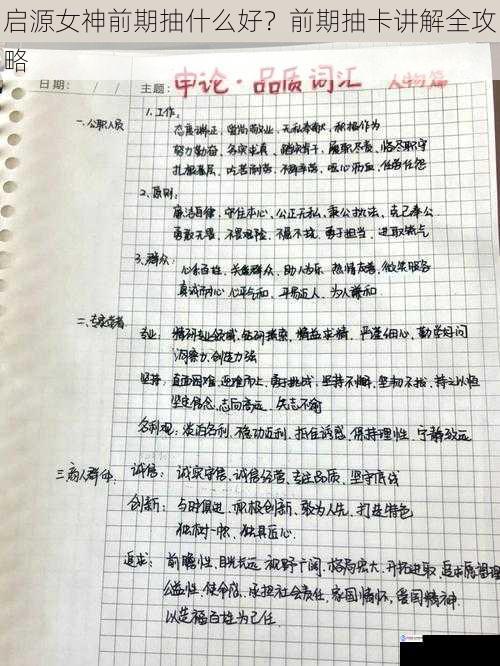 启源女神前期抽什么好？前期抽卡讲解全攻
略
日期：　/　/　主题：申论·品质词汇　人物篇
一.公职人员　1.工作：
态度端正，爱岗敬业，无私奉献，积极作为
努力勤奋，务实求真，踏实肯干，履职尽责，恪尽职守
扎根基层，吃苦耐劳，不辞辛劳，呕心沥血，任劳任怨
2.原则：
廉洁自律，守住本心，公正无私，秉公执法，克己奉公
勇敢无畏，不畏艰险，不屈不挠，勇于担当，进取锐气
3.群众：
心系百姓，关爱群众，助人为乐，热情友善，微笑服务
真诚耐心，心平气和，平易近人，为人谦和
二.专家学者
专业：精研专业领域，钻研探索，精益求精，严谨细心，勤学好问
洞察力，创造力强
坚持：直面困难，迎难而上，勇于挑战，坚持不懈，坚韧不拔，持之以恒
坚定信念，志向高远，矢志不渝
名利观：淡泊名利，急功近利，抵住诱惑，保持理性，宁静致远
三.商人群体
诚信：诚实守信，诚信经营，专注品质，坚守底线
创新：与时俱进，积极创新，敢为人先，打造特色
独树一帜，独具匠心
追求：前瞻性，目光长远，视野广阔，格局宏大，开拓进取，追求
公益性，使命感，承担社会责任，家国情怀，爱国精神
以造福百姓为己任。